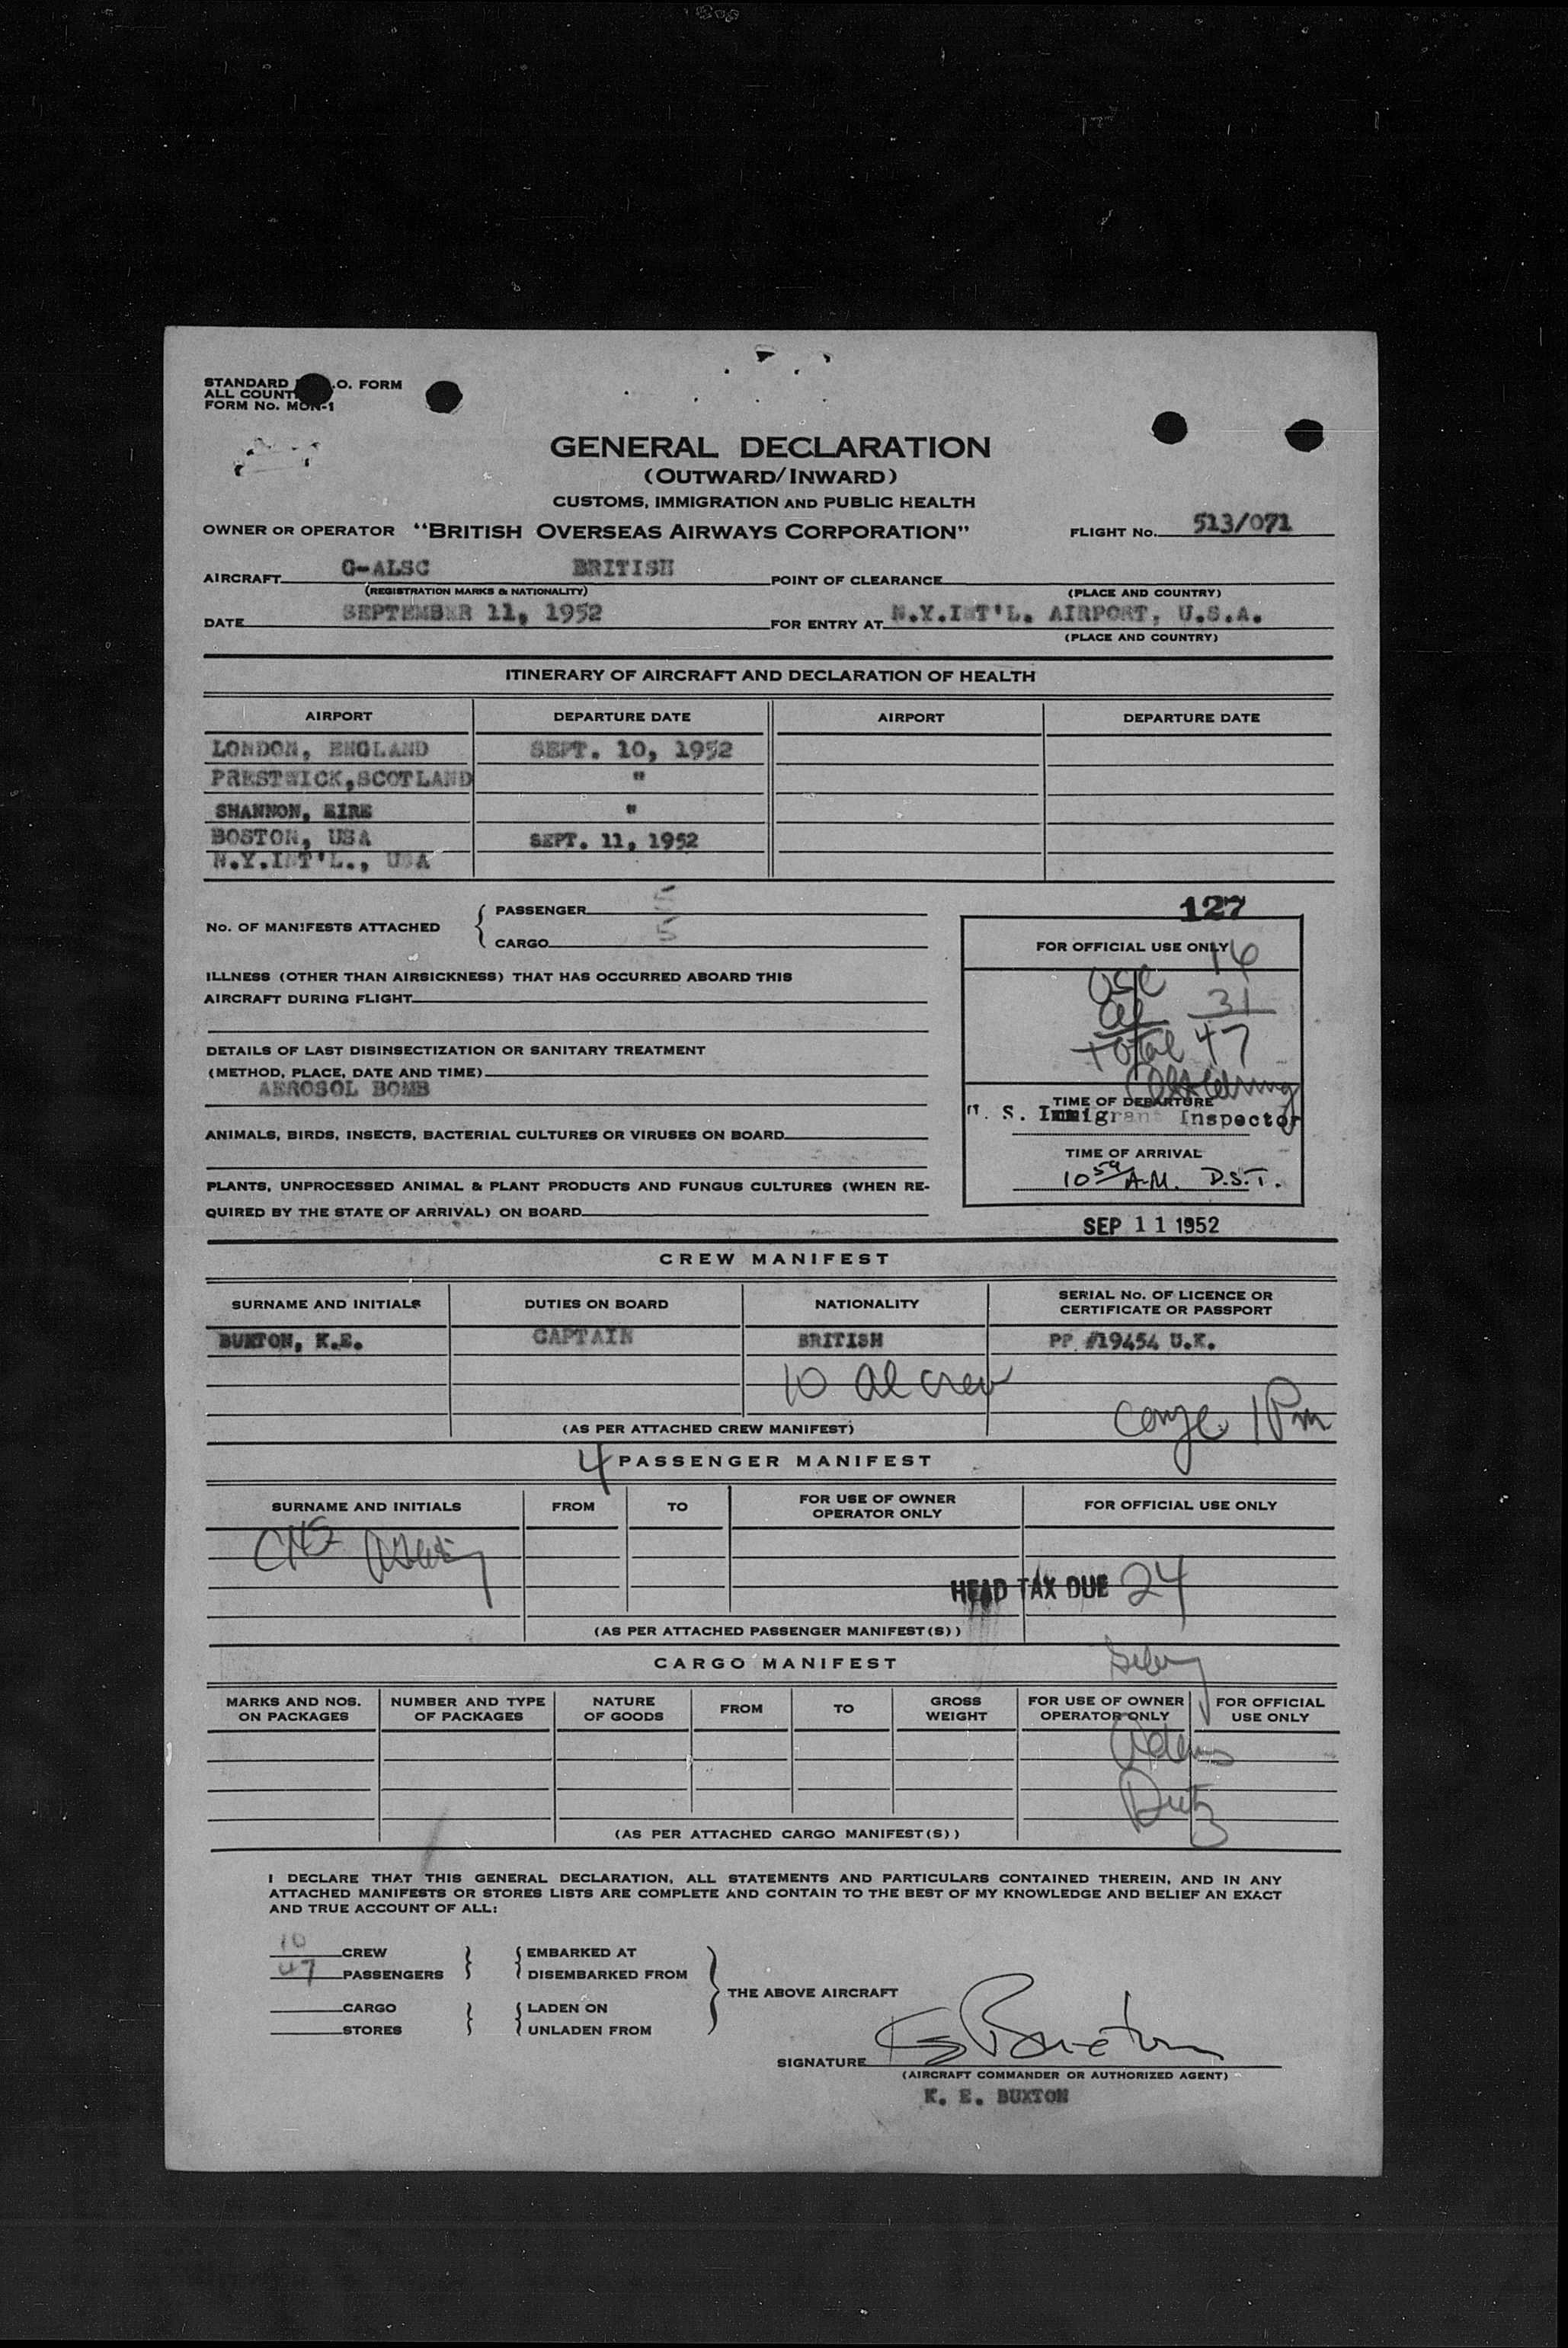 STANDARD .O. FORM
ALL COUNT
FORM No. MON-1
GENERAL DECLARATION
(OUTWARD/INWARD)
CUSTOMS, IMMIGRATION AND PUBLIC HEALTH
OWNER OR OPERATOR "BRITISH OVERSEAS AIRWAYS CORPORATION" FLIGHT No. 513/071
AIRCRAFT G-ALSC BRITISH POINT OF CLEARANCE
(REGISTRATION MARKS & NATIONALITY) (PLACE AND COUNTRY)
DATE SEPTEMBER 11, 1952 FOR ENTRY AT N.Y.INT'L. AIRPORT, U.S.A.
(PLACE AND COUNTRY)
ITINERARY OF AIRCRAFT AND DECLARATION OF HEALTH
AIRPORT DEPARTURE DATE AIRPORT DEPARTURE DATE
LONDON, ENGLAND SEPT. 10, 1952
PRESTWICK,SCOTLAND "
SHANNON, EIRE "
BOSTON, USA SEPT. 11, 1952
N.Y.INT'L., USA
No. OF MANIFESTS ATTACHED { PASSENGER 5
CARGO 5
127
FOR OFFICIAL USE ONLY
USC 16
al 31
total 47
ILLNESS (OTHER THAN AIRSICKNESS) THAT HAS OCCURRED ABOARD THIS
AIRCRAFT DURING FLIGHT
DETAILS OF LAST DISINSECTIZATION OR SANITARY TREATMENT
(METHOD, PLACE, DATE AND TIME)
AEROSOL BOMB
TIME OF DEPARTURE
U. S. Immigrant Inspector
ANIMALS, BIRDS, INSECTS, BACTERIAL CULTURES OR VIRUSES ON BOARD
TIME OF ARRIVAL
10 59 A.M. D.S.T.
PLANTS, UNPROCESSED ANIMAL & PLANT PRODUCTS AND FUNGUS CULTURES (WHEN RE-
QUIRED BY THE STATE OF ARRIVAL) ON BOARD
SEP 11 1952
CREW MANIFEST
SURNAME AND INITIALS DUTIES ON BOARD NATIONALITY SERIAL No. OF LICENCE OR
CERTIFICATE OR PASSPORT
BUXTON, K.E. CAPTAIN BRITISH PP #19454 U.K.
10 al crew
1 Pm
(AS PER ATTACHED CREW MANIFEST)
4 PASSENGER MANIFEST
SURNAME AND INITIALS FROM TO FOR USE OF OWNER
OPERATOR ONLY FOR OFFICIAL USE ONLY
HEAD TAX DUE 24
(AS PER ATTACHED PASSENGER MANIFEST(S))
CARGO MANIFEST
MARKS AND NOS.
ON PACKAGES NUMBER AND TYPE
OF PACKAGES NATURE
OF GOODS FROM TO GROSS
WEIGHT FOR USE OF OWNER
OPERATOR ONLY FOR OFFICIAL
USE ONLY
Adams
(AS PER ATTACHED CARGO MANIFEST(S))
I DECLARE THAT THIS GENERAL DECLARATION, ALL STATEMENTS AND PARTICULARS CONTAINED THEREIN, AND IN ANY
ATTACHED MANIFESTS OR STORES LISTS ARE COMPLETE AND CONTAIN TO THE BEST OF MY KNOWLEDGE AND BELIEF AN EXACT
AND TRUE ACCOUNT OF ALL:
10 CREW } { EMBARKED AT
47 PASSENGERS DISEMBARKED FROM
} THE ABOVE AIRCRAFT
CARGO } { LADEN ON
STORES UNLADEN FROM
SIGNATURE K E Buxton
(AIRCRAFT COMMANDER OR AUTHORIZED AGENT)
K. E. BUXTON